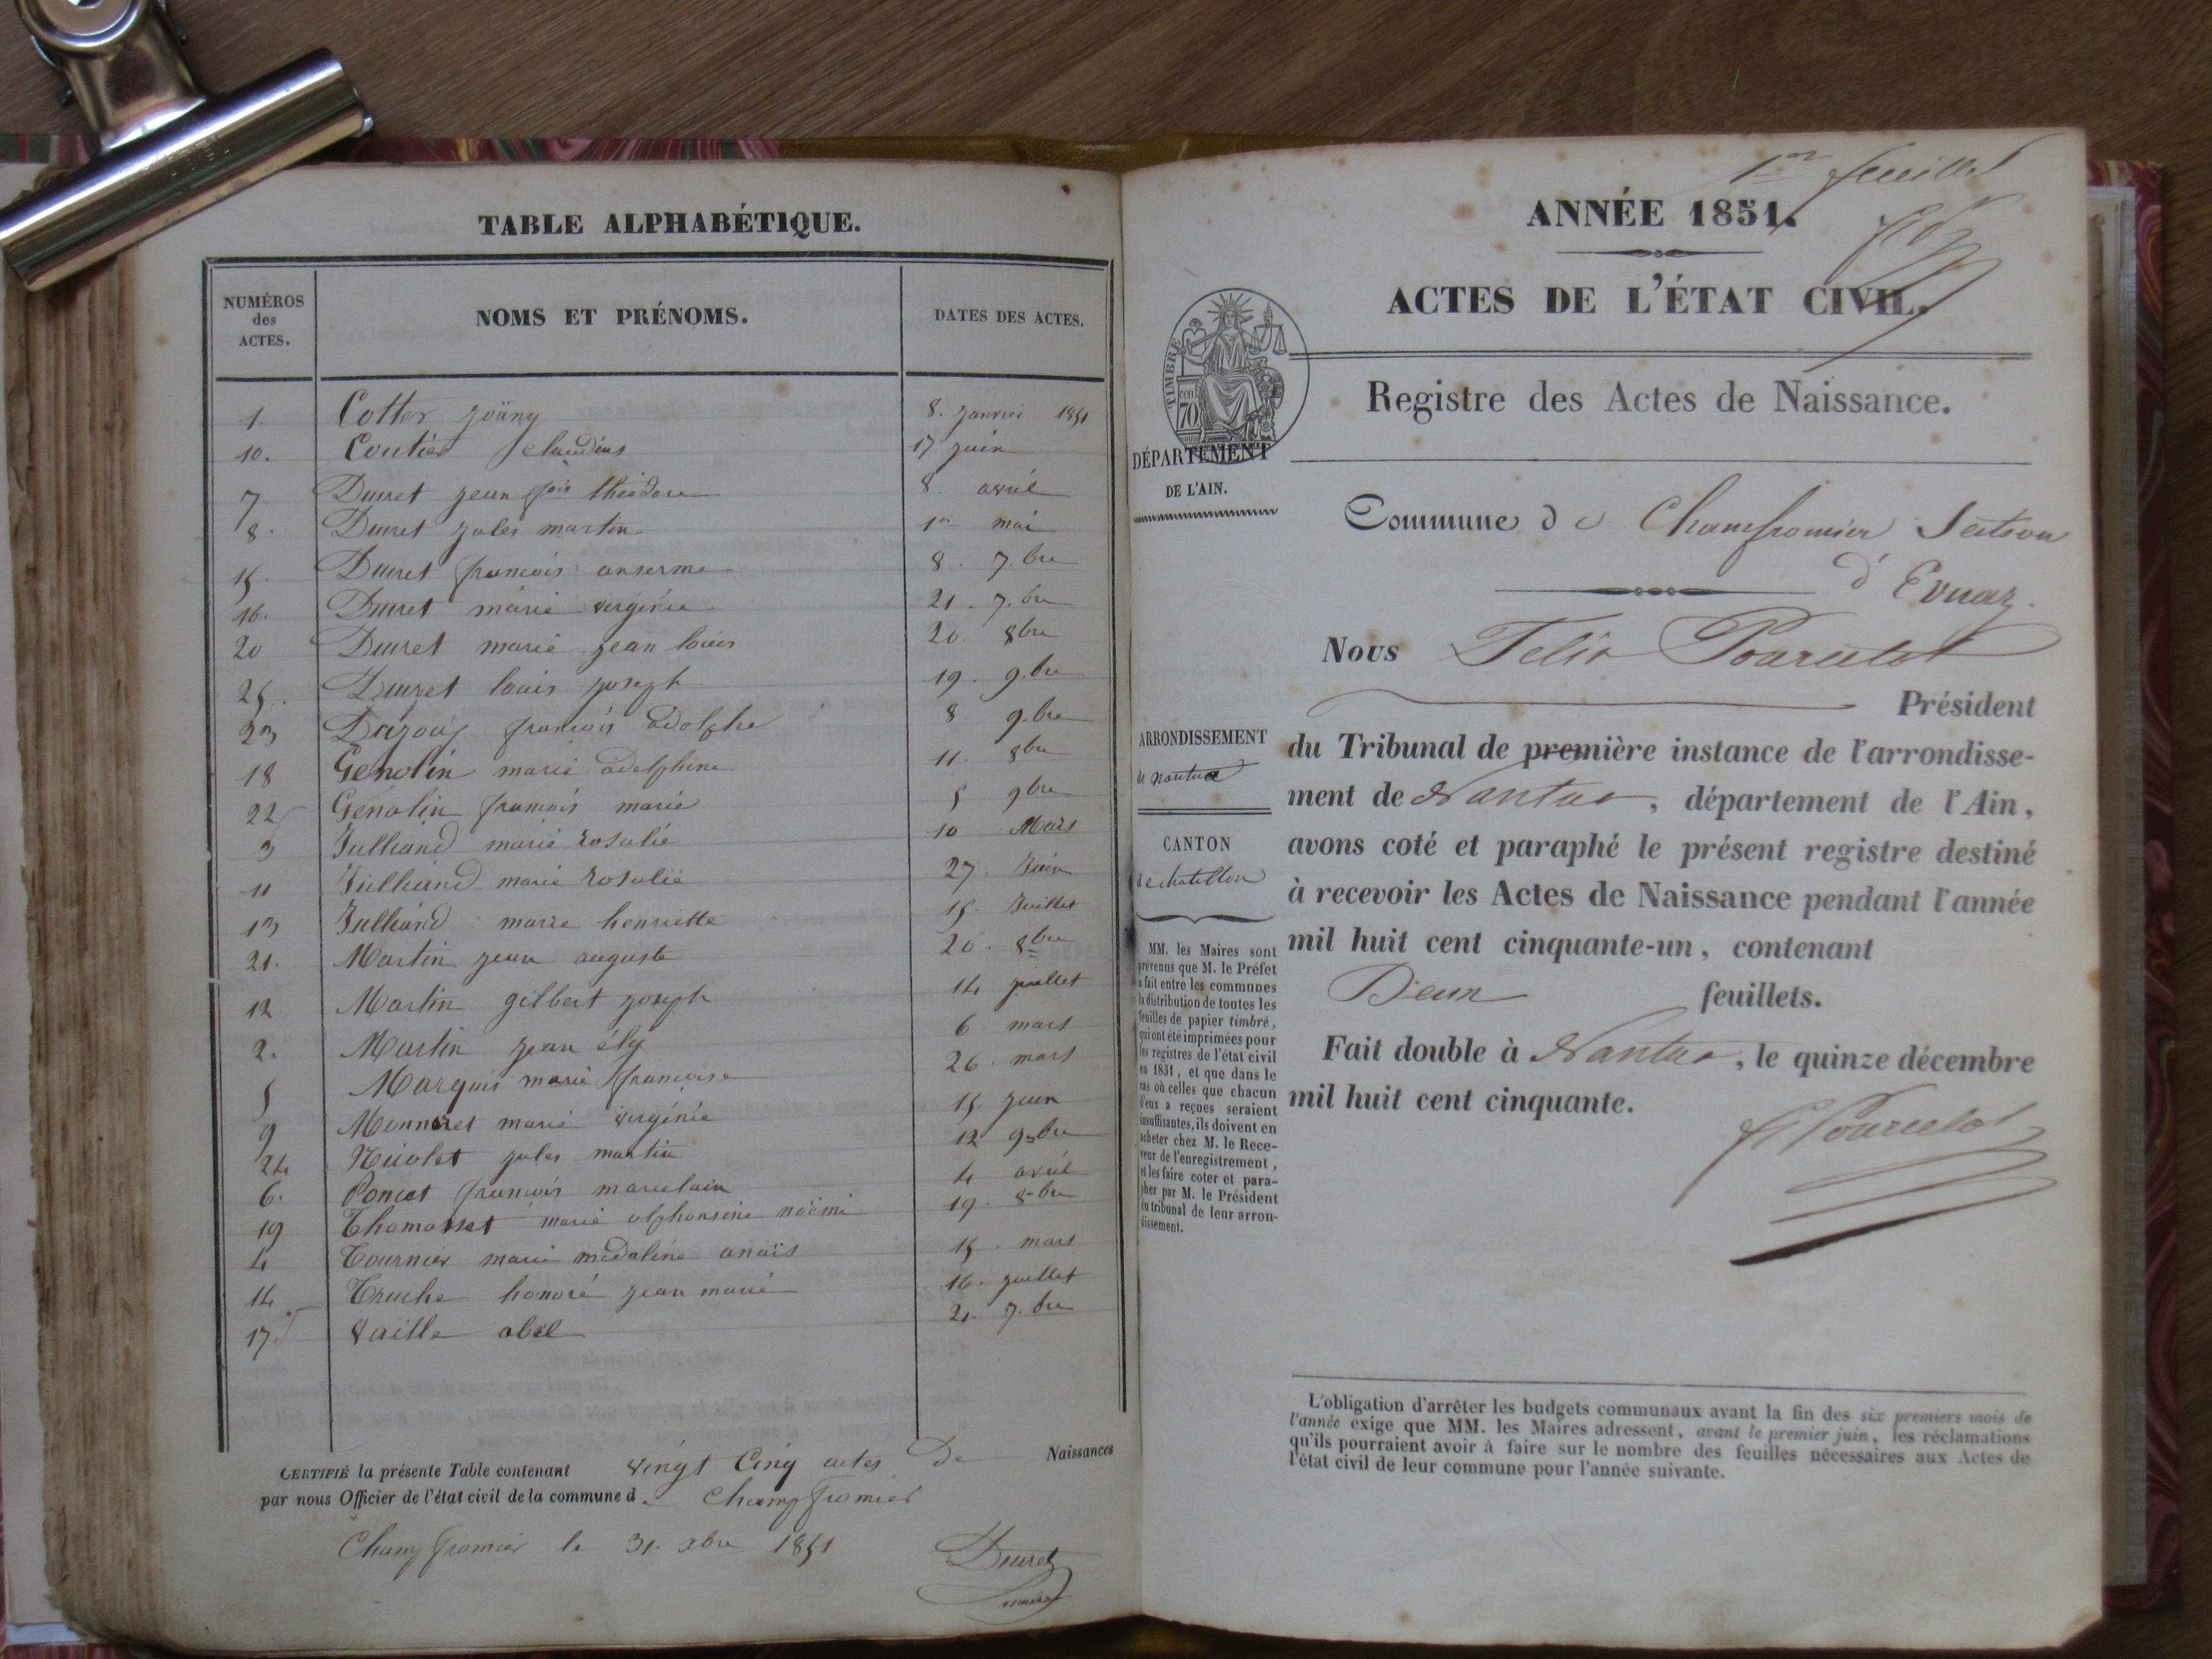 TABLE ALPHABÉTIQUE.
NUMÉROS des ACTES.
NOMS ET PRÉNOMS.
DATES DES ACTES.
1. Cotter joäny 8. janvier 1851
10. Coutier claudius 17 juin
7. Ducret jean fois théodore 8. avril
8. Ducret jules martin 1er mai
15. Ducret francois anserme 8. 7.bre
16. Ducret marie virginie 21. 7.bre
20 Ducret marie jean louis 20. 8bre
25. Ducret louis joseph 19. 9.bre
23 francois adolphe 8 9.bre
18 Genolin marie adelphine 11. 8bre
22 Genolin francois marie 5 9bre
3 Julliand marie rosalie 10 Mars
11 Julliand marie rosalie 27. Juin
13 Julliand marie henriette 15. Juillet
21. Martin jean auguste 20. 8bre
12 Martin gilbert joseph 14 juillet
2. Martin jean ély 6. mars
5 Marquis marie francoise 26. mars
9 Monneret marie virginie 15. juin
24 Nicolet jules martin 12 9bre
6. Poncet francois marcelain 4 avril
19 Thomasset marie alphonsine noëmi 19. 8bre
4 Tournier marie madaline anaïs 15. mars
14 Truche honoré jean marie 16. juillet
17. Vaille abel 21. 7.bre
CERTIFIÉ la présente Table contenant vingt Cinq actes De Naissances
par nous Officier de l'état civil de la commune d. Champfromier
Champfromier le 31. xbre 1851
Ducret
maire
1er feuillet
ANNÉE 1851.
ACTES DE L'ÉTAT CIVIL.
TIMBRE
70
Registre des Actes de Naissance.
DÉPARTEMENT
DE L'AIN.
Commune de Champfromier Section
d'Evuaz.
Nous Felix Pourcelot
Président
ARRONDISSEMENT
de Nantua
du Tribunal de première instance de l'arrondisse-
ment de Nantua, département de l'Ain,
CANTON
de chatillon
avons coté et paraphé le présent registre destiné
à recevoir les Actes de Naissance pendant l'année
mil huit cent cinquante-un, contenant
Deux feuillets.
Fait double à Nantua, le quinze décembre
mil huit cent cinquante.
F Pourcelot
MM. les Maires sont
prévenus que M. le Préfet
a fait entre les communes
la distribution de toutes les
feuilles de papier timbré,
qui ont été imprimées pour
les registres de l'état civil
en 1851, et que dans le
cas où celles que chacun
d'eux a reçues seraient
insuffisantes, ils doivent en
acheter chez M. le Rece-
veur de l'enregistrement,
et les faire coter et para-
pher par M. le Président
du tribunal de leur arron-
dissement.
L'obligation d'arrêter les budgets communaux avant la fin des six premiers mois de
l'année exige que MM. les Maires adressent, avant le premier juin, les réclamations
qu'ils pourraient avoir à faire sur le nombre des feuilles nécessaires aux Actes de
l'état civil de leur commune pour l'année suivante.